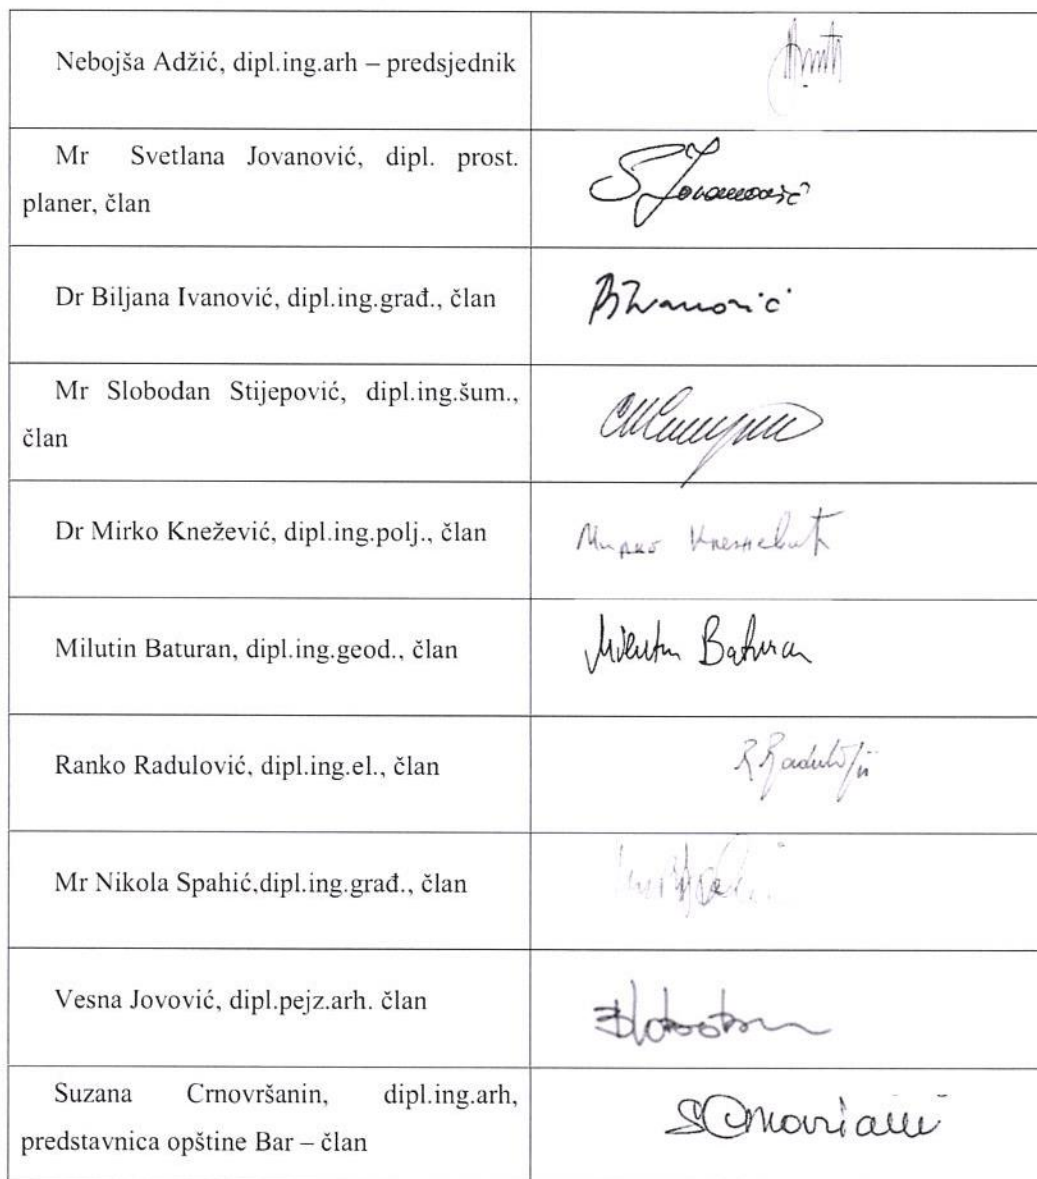 Nebojša Adžić, dipl.ing.arh – predsjednik
Mr Svetlana Jovanović, dipl. prost.
planer, član
S Jovanović
Dr Biljana Ivanović, dipl.ing.građ., član
BIvanović
Mr Slobodan Stijepović, dipl.ing.šum.,
član
Dr Mirko Knežević, dipl.ing.polj., član
Мирко Кнежевић
Milutin Baturan, dipl.ing.geod., član
Milutin Baturan
Ranko Radulović, dipl.ing.el., član
Mr Nikola Spahić,dipl.ing.građ., član
Vesna Jovović, dipl.pejz.arh. član
Suzana Crnovršanin, dipl.ing.arh,
predstavnica opštine Bar – član